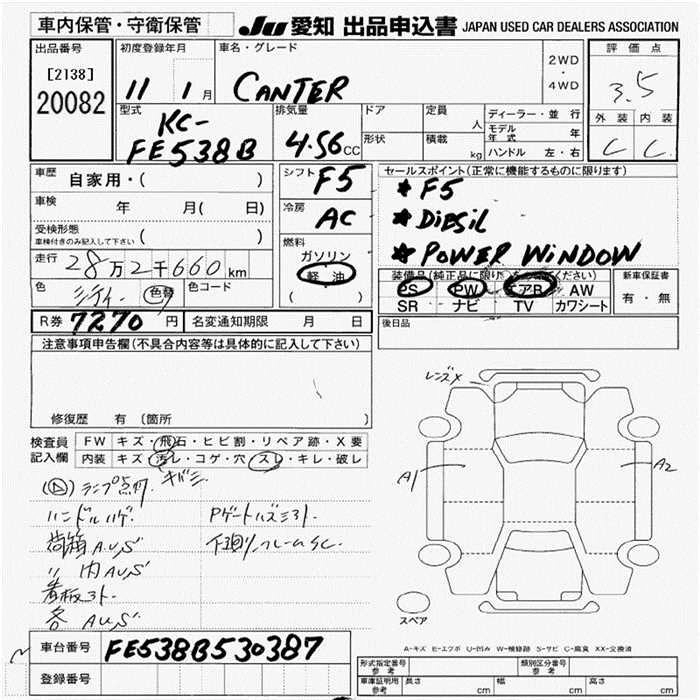 車内保管・守衛保管
JU 愛知 出品申込書 JAPAN USED CAR DEALERS ASSOCIATION
出品番号
[2138]
20082
初度登録年月
11 1月
車名・グレード
CANTER
2WD
・
4WD
評価点
3.5
外装 内装
C C
型式
KC-
FE538B
排気量
4.56cc
ドア
形状
定員
人
積載
kg
ディーラー・並行
モデル
年式
年
ハンドル 左・右
車歴 自家用・( )
車検 年 月( 日)
受検形態
車検付きのみ記入して下さい ( )
走行 28万2千660km
色 色替 色コード
シフト F5
冷房 AC
燃料
ガソリン
軽油
( )
セールスポイント(正常に機能するものに限ります)
* F5
* DiESiL
* POWER WINDOW
装備品(純正品に限り)をご記入ください)
PS PW エアB AW
SR ナビ TV カワシート
新車保証書
有・無
R券 7270円 名変通知期限 月 日
後日品
注意事項申告欄(不具合内容等は具体的に記入して下さい)
修復歴 有 〔箇所
検査員
記入欄
FW キズ・飛石・ヒビ割・リペア跡・X要
内装 キズ・汚レ・コゲ・穴・スレ・キレ・破レ
キバミ
ランプ点灯
ハンドルハゲ
荷箱A.U.S
〃 内AUS
看板3ト.
各 AUS
Pゲートハズミ3ト.
下廻り.フレームSC.
レンズX
A1
A2
スペア
A-キズ E-エクボ U-凹み W-補修跡 S-サビ C-腐食 XX-交換済
車台番号 FE538B530387
登録番号
形式指定番号
参考
類別区分番号
参考
車庫証明用
参考
長さ cm 幅 cm 高さ cm